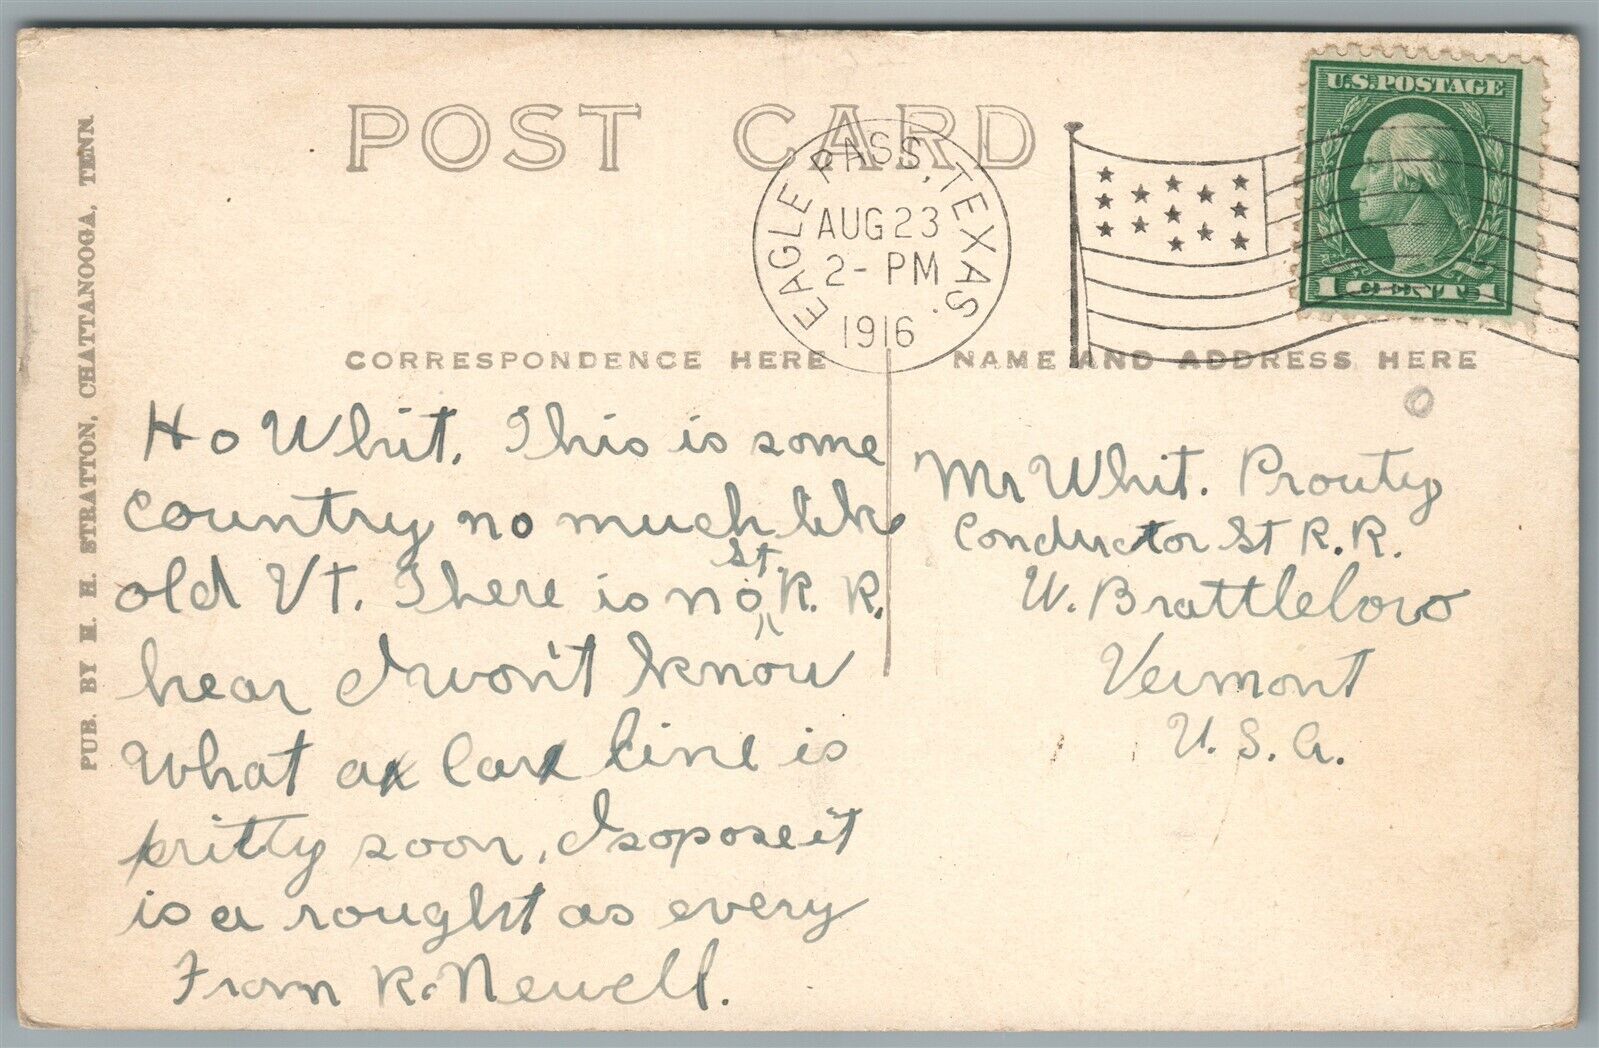 POST CARD
U.S. POSTAGE
1 CENT 1
EAGLE PASS, TEXAS.
AUG 23
2- PM
1916
CORRESPONDENCE HERE
NAME AND ADDRESS HERE
PUB. BY H. H. STRATTON, CHATTANOOGA, TENN.
Ho Whit. This is some
country no much like
old Vt. There is no St. R. R.
hear I won't know
What a Car line is
pritty soon, I sopose it
is a rought as every
From R. Newell.
Mr Whit. Prouty
Conductor St R. R.
W. Brattleboro
Vermont
U. S. A.